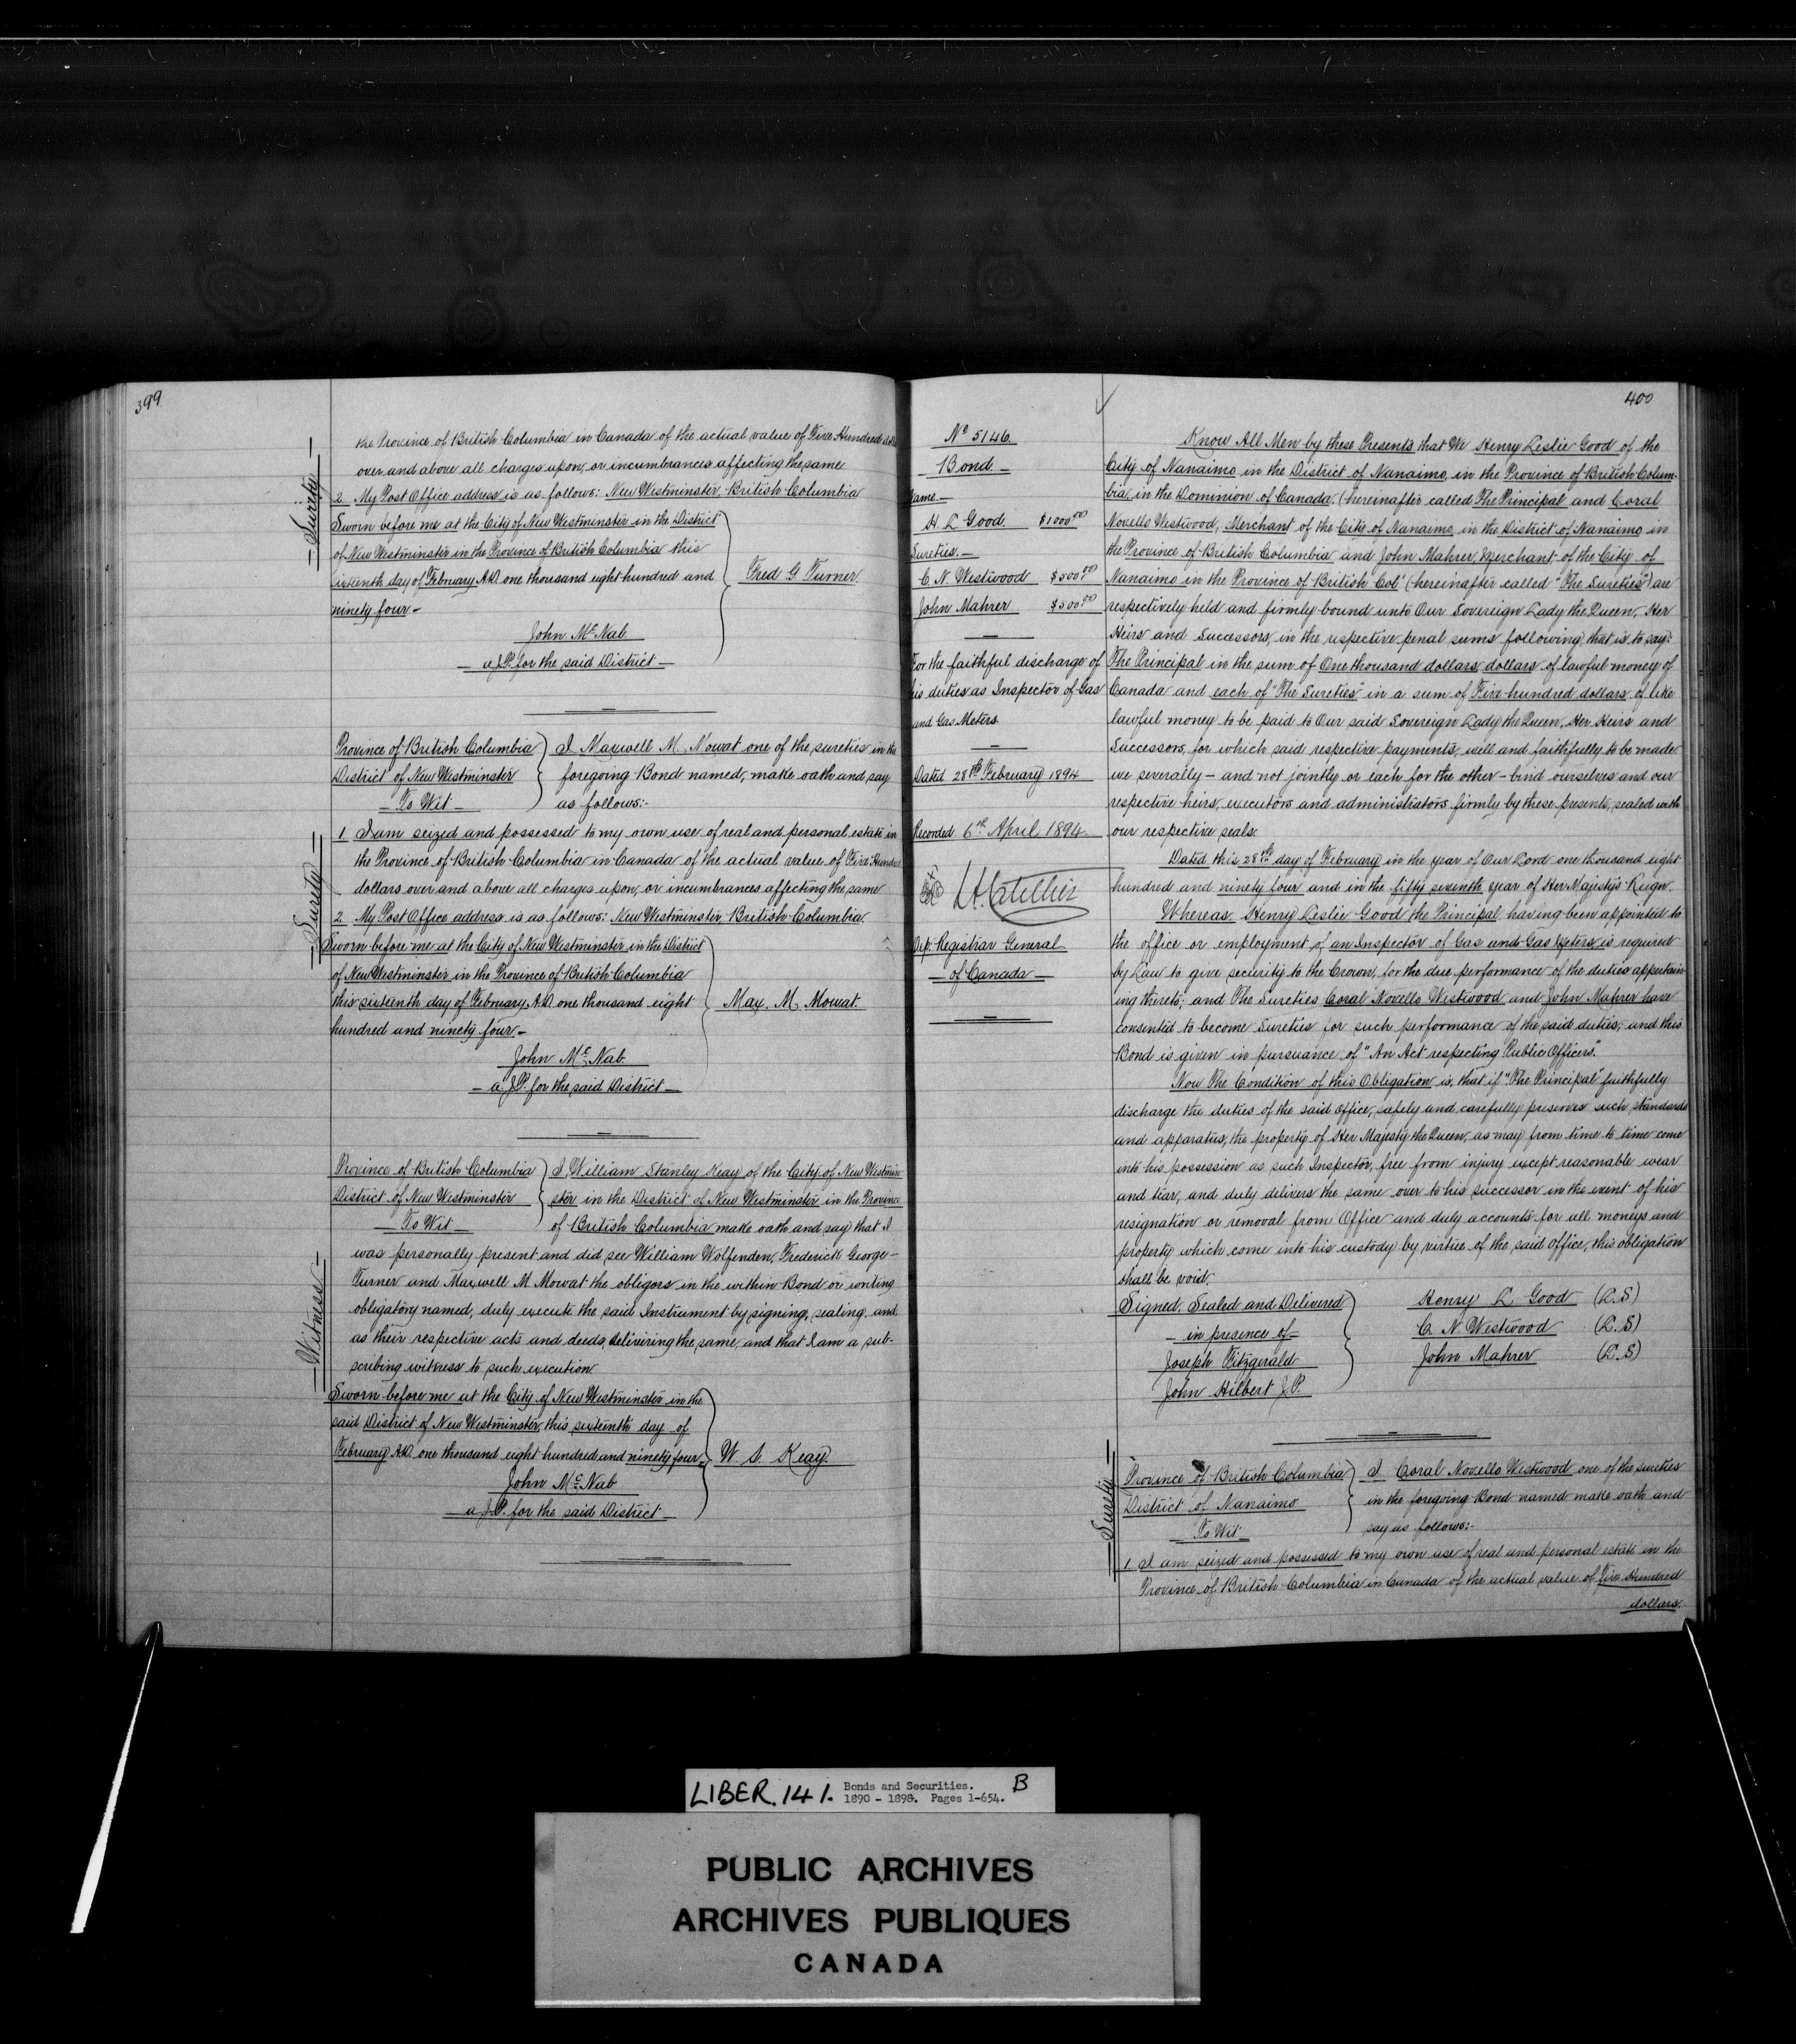 399
— Surety —
the Province of British Columbia in Canada of the actual value of Five Hundred
over and above all charges upon, or incumbrances affecting the same
2. My Post Office address is as follows: New Westminster, British Columbia
Sworn before me at the City of New Westminster in the District
of New Westminster in the Province of British Columbia this
sixteenth day of February A.D. one thousand eight hundred and
ninety four —
Fred G. Turner.
John McNab
— a J.P. for the said District —
Province of British Columbia
District of New Westminster
— To Wit —
I Maxwell M. Mowat one of the sureties in the
foregoing Bond named, make oath and say
as follows:-
— Surety —
1. I am seized and possessed to my own use of real and personal estate in
the Province of British Columbia in Canada of the actual value of Five Hundred
dollars over and above all charges upon, or incumbrances affecting the same
2. My Post Office address is as follows: New Westminster, British Columbia.
Sworn before me at the City of New Westminster in the District
of New Westminster in the Province of British Columbia
this sixteenth day of February A.D. one thousand eight
hundred and ninety four —
Max. M. Mowat.
John McNab
— a J.P. for the said District —
Province of British Columbia
District of New Westminster
— To Wit —
I, William Stanley Keay of the City of New Westmin-
ster in the District of New Westminster in the Province
of British Columbia make oath and say that I
— Witness —
was personally present and did see William Wolfenden, Frederick George
Turner and Maxwell M. Mowat the obligors in the within Bond or writing
obligatory named, duly execute the said Instrument by signing, sealing, and
as their respective acts and deeds, delivering the same, and that I am a sub-
scribing witness to such execution
Sworn before me at the City of New Westminster in the
said District of New Westminster, this sixteenth day of
February A.D. one thousand eight hundred and ninety four —
W. S. Keay.
John McNab
— a J.P. for the said District —
400
No 5146
Bond —
Name —
H. L. Good $1000.00
Sureties. —
C. N. Westwood $500.00
John Mahrer $500.00
For the faithful discharge of
his duties as Inspector of Gas
and Gas Meters.
Dated 28th February 1894
Recorded 6th April 1894
Dep. Registrar General
— of Canada —
Know All Men by these Presents that We Henry Leslie Good of the
City of Nanaimo in the District of Nanaimo, in the Province of British Colum-
bia, in the Dominion of Canada, (hereinafter called The Principal and Coral
Novello Westwood, Merchant of the City of Nanaimo in the District of Nanaimo in
the Province of British Columbia and John Mahrer, Merchant of the City of
Nanaimo in the Province of British Col (hereinafter called "The Sureties") are
respectively held and firmly bound unto Our Sovereign Lady the Queen, Her
Heirs and Successors, in the respective penal sums following, that is to say:
The Principal in the sum of One thousand dollars dollars of lawful money of
Canada and each of "The Sureties" in a sum of Five hundred dollars of like
lawful money to be paid to Our said Sovereign Lady the Queen, Her Heirs and
Successors, for which said respective payments, well and faithfully to be made
we severally — and not jointly or each for the other — bind ourselves and our
respective heirs, executors and administrators firmly by these presents, sealed with
our respective seals.
Dated this 28th day of February in the year of Our Lord one thousand eight
hundred and ninety four and in the fifty seventh year of Her Majesty's Reign.
Whereas, Henry Leslie Good the Principal, having been appointed to
the office or employment of an Inspector of Gas and Gas Meters is required
by Law to give security to the Crown, for the due performance of the duties appertain-
ing thereto; and The Sureties Coral Novello Westwood and John Mahrer have
consented to become Sureties for such performance of the said duties, and this
Bond is given in pursuance of "An Act respecting Public Officers".
Now The Condition of this Obligation is, that if "The Principal" faithfully
discharge the duties of the said office, safely and carefully preserves such standards
and apparatus, the property of Her Majesty the Queen, as may from time to time come
into his possession as such Inspector, free from injury except reasonable wear
and tear, and duly delivers the same over to his successor in the event of his
resignation or removal from Office and duly accounts for all moneys and
property which come into his custody by virtue of the said office, this obligation
shall be void.
Signed, Sealed and Delivered
— in presence of —
Joseph Fitzgerald
John Hilbert J.P.
Henry L. Good (L.S)
C. N. Westwood (L.S)
John Mahrer (L.S)
— Surety —
Province of British Columbia
District of Nanaimo
To Wit
I Coral Novello Westwood one of the sureties
in the foregoing Bond named make oath and
say as follows:-
1. I am seized and possessed to my own use of real and personal estate in the
Province of British Columbia in Canada of the actual value of Five Hundred
dollars.
LIBER. 141. Bonds and Securities. B
1890 - 1898. Pages 1-654.
PUBLIC ARCHIVES
ARCHIVES PUBLIQUES
CANADA